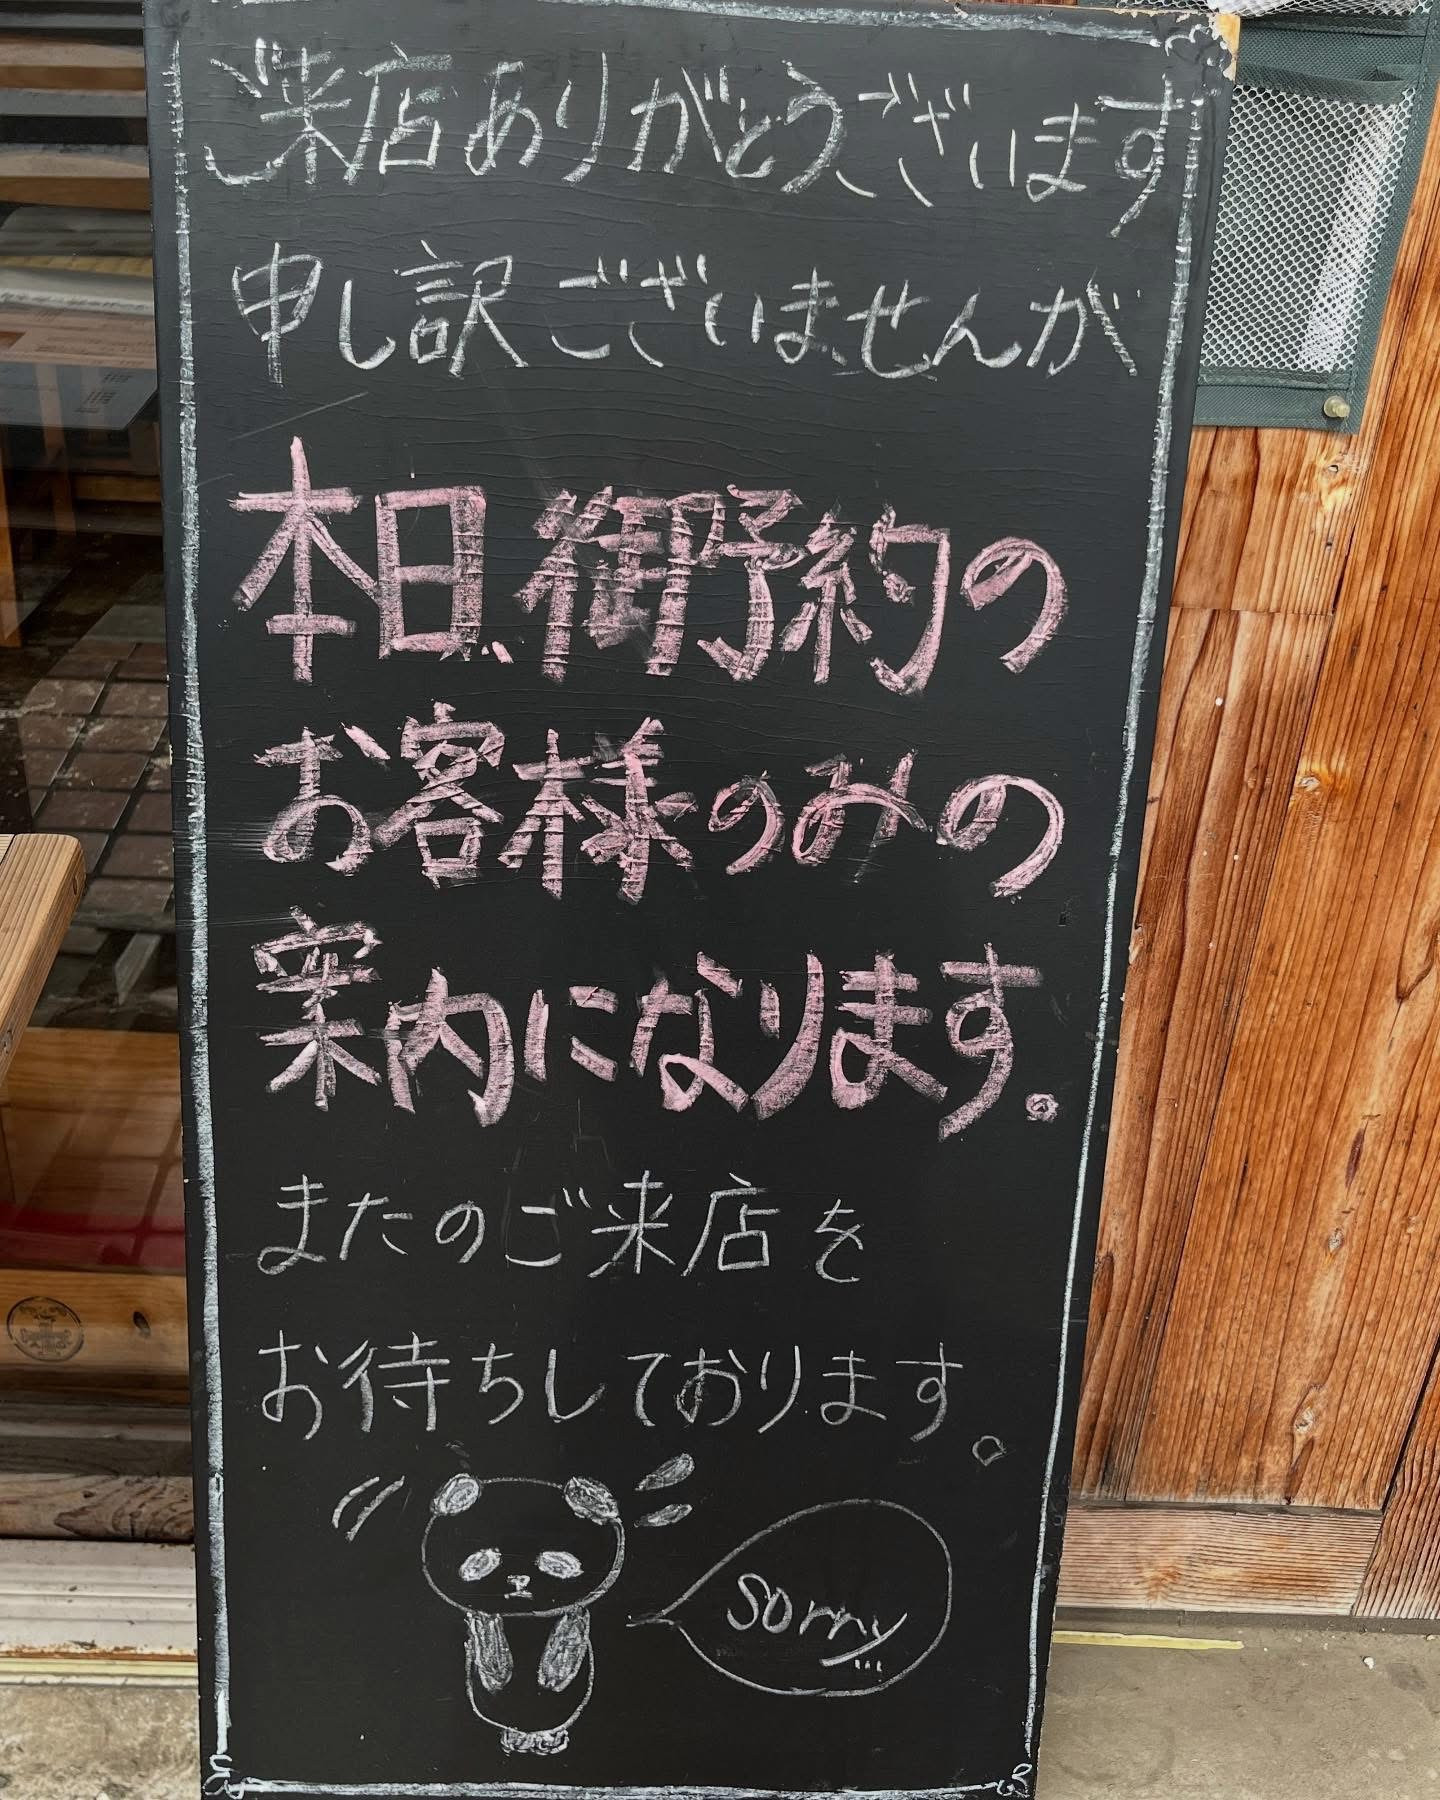 ご来店ありがとうございます
申し訳ございませんが
本日、御予約の
お客様のみの
案内になります。
またのご来店を
お待ちしております。
sorry...